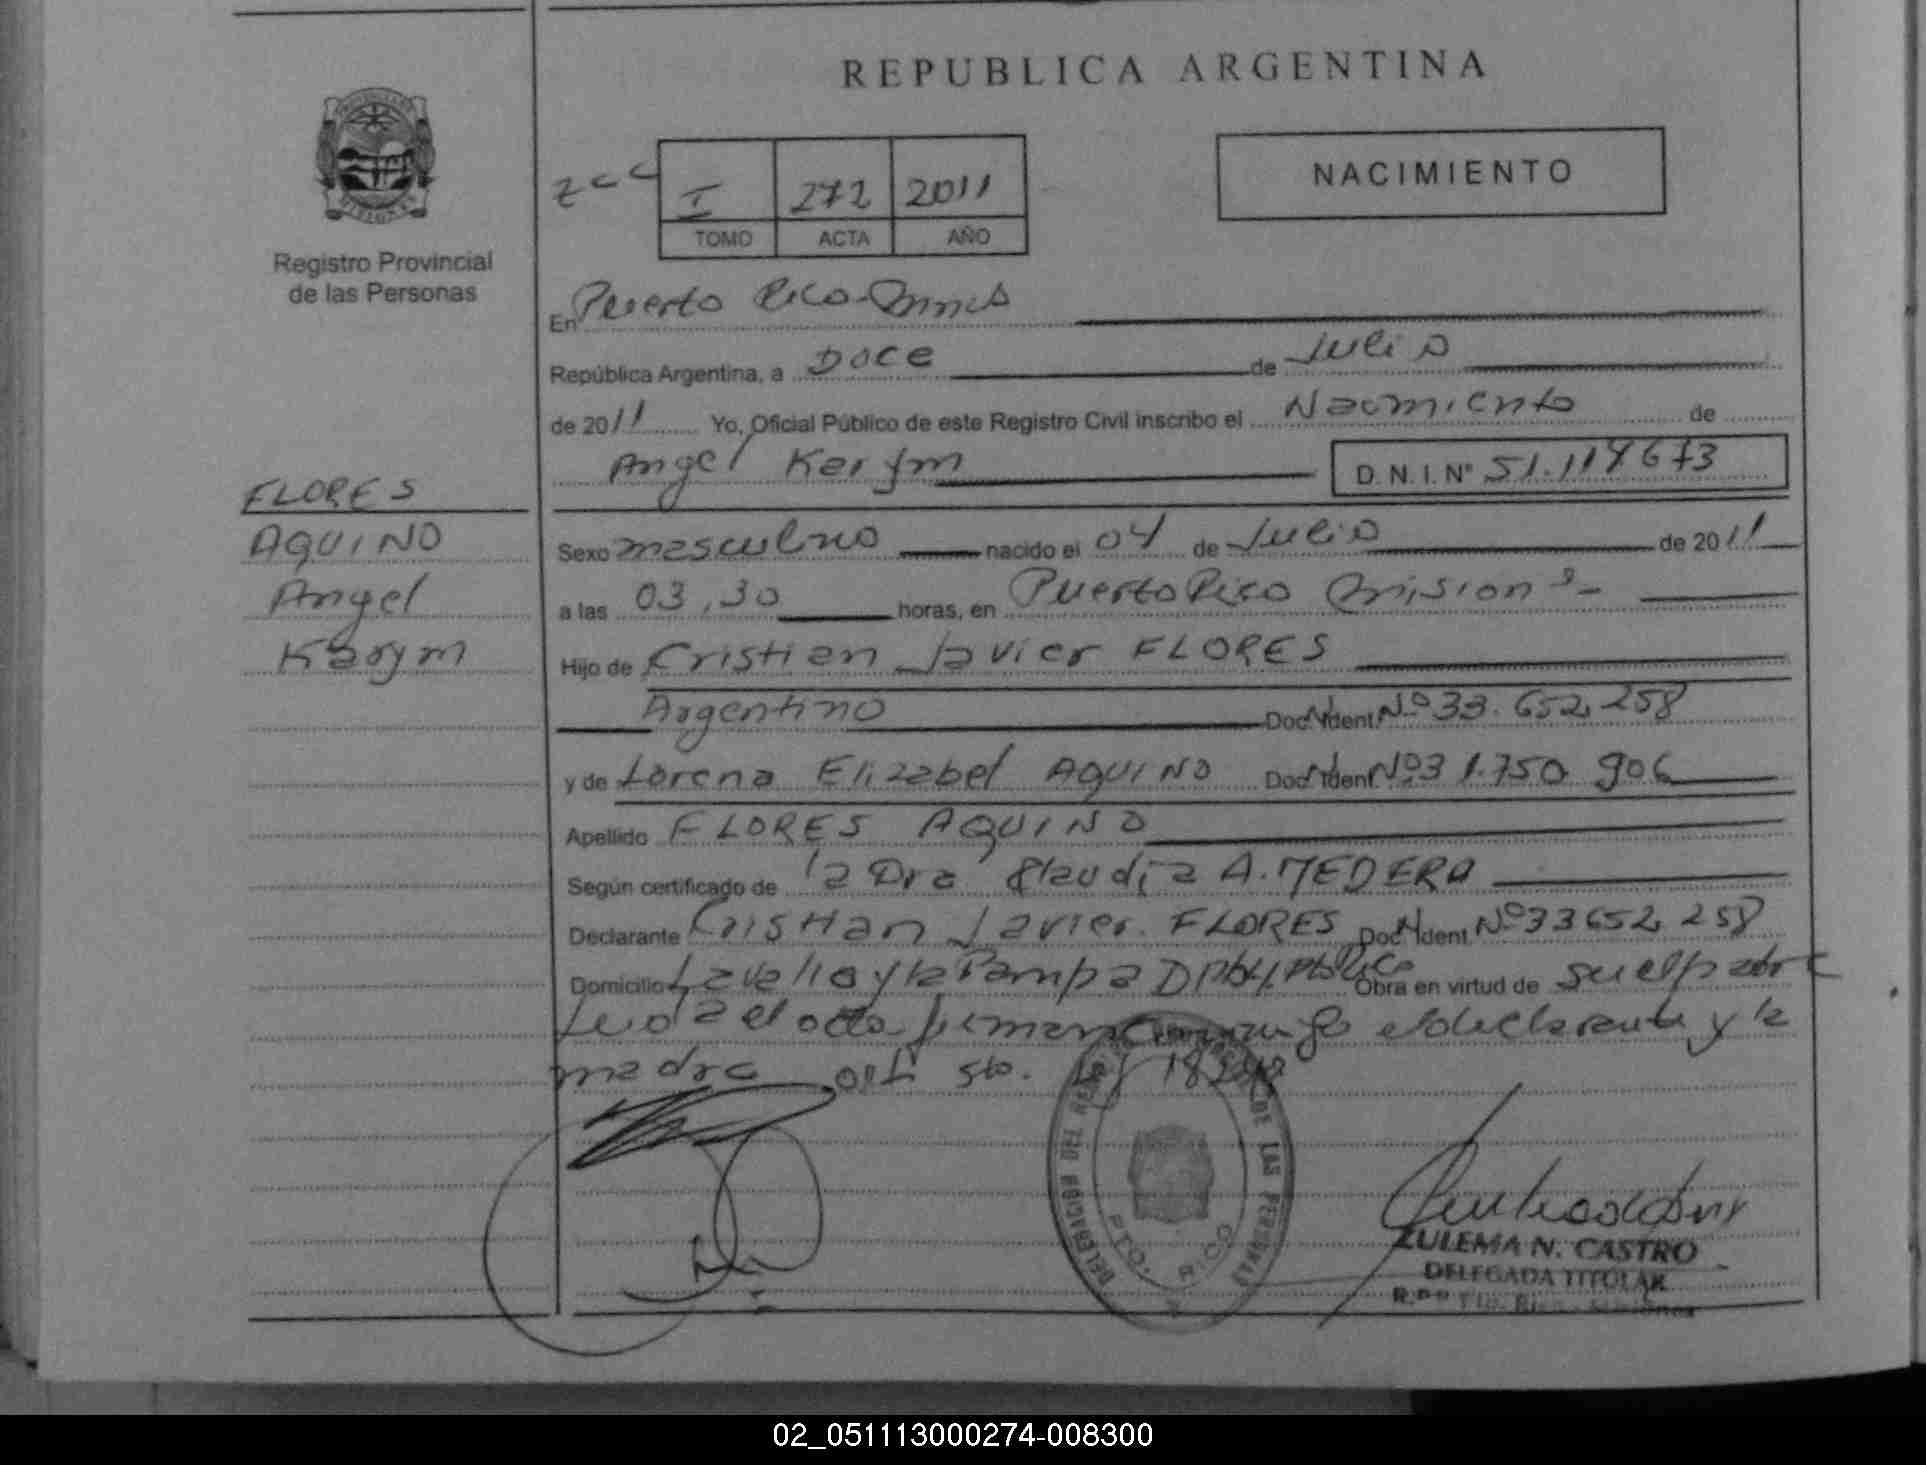 REPUBLICA ARGENTINA
Registro Provincial
de las Personas
I 272 2011
TOMO ACTA AÑO
NACIMIENTO
En Puerto Rico
República Argentina, a Doce de Julio
de 2011 Yo, Oficial Público de este Registro Civil inscribo el Nacimiento de
Angel Karym D. N. I. N°
FLORES
AQUINO
Angel
Karym
Sexo masculino nacido el 04 de Julio de 2011
a las 03,30 horas, en Puerto Rico
Hijo de Cristian Javier FLORES
Argentino Doc. Ident. Nº 33.652.258
y de Lorena Elizabet AQUINO Doc. Ident. Nº 31.750.906
Apellido FLORES AQUINO
Según certificado de la Dra Claudia A. MEDERA
Declarante Cristian Javier FLORES Doc. Ident. Nº 33652.258
Domicilio Lavalle y la Pampa Obra en virtud de su el padre
el declarante y la
madre
DELEGACION DEL REGISTRO DE LAS PERSONAS
PTO. RICO
ZULEMA N. CASTRO
DELEGADA TITULAR
02_051113000274-008300